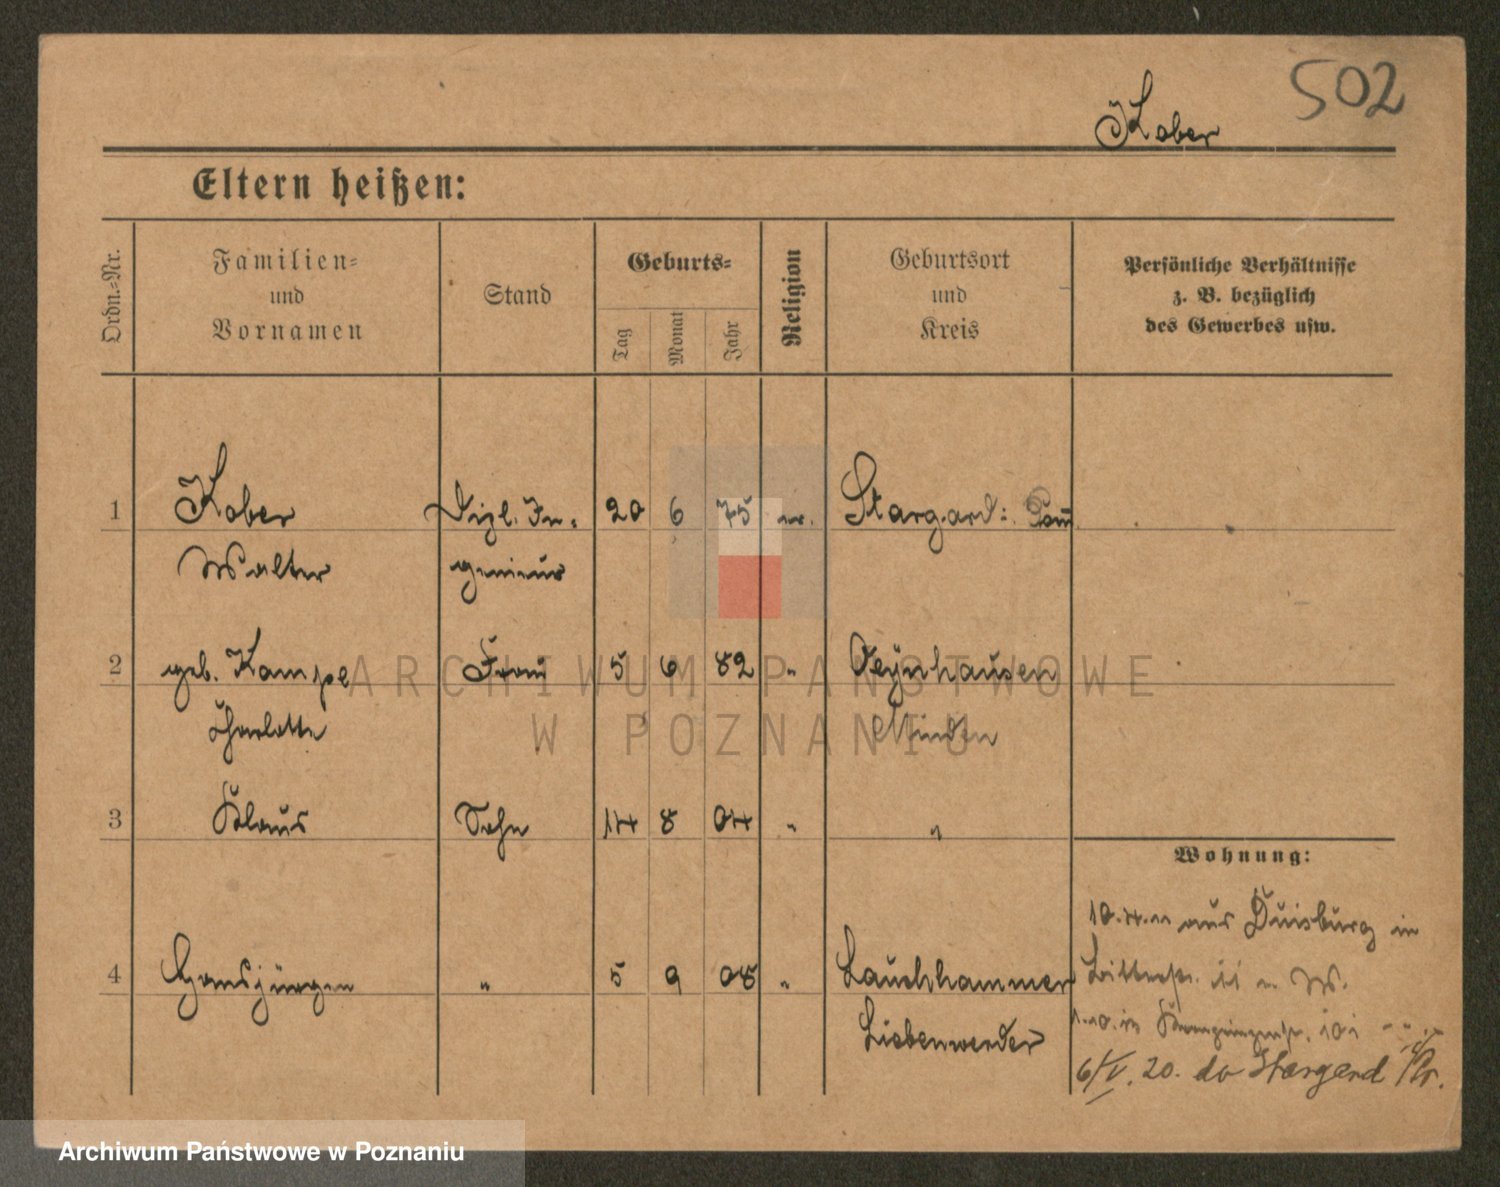 502
Kober
Eltern heißen:
Ordn.-Nr.
Familien-
und
Vornamen
Stand
Geburts-
Tag
Monat
Jahr
Religion
Geburtsort
und
Kreis
Persönliche Verhältnisse
z. B. bezüglich
des Gewerbes usw.
1 Kober Dipl. In- 20 6 75 ev. Stargard i. Pom
Walter genieur
2 geb. Kampe Frau 5 6 82 " Oeynhausen
Charlotte Minden
3 Klaus Sohn 14 8 04 " "
Wohnung:
10.4.11 aus Duisburg in
4 Hansjürgen " 5 9 08 " Lauchhammer
Liebenwerder
1.10.13 Kronprinzenstr. 101
6/V. 20. do Stargard
ARCHIWUM PAŃSTWOWE
W POZNANIU
Archiwum Państwowe w Poznaniu